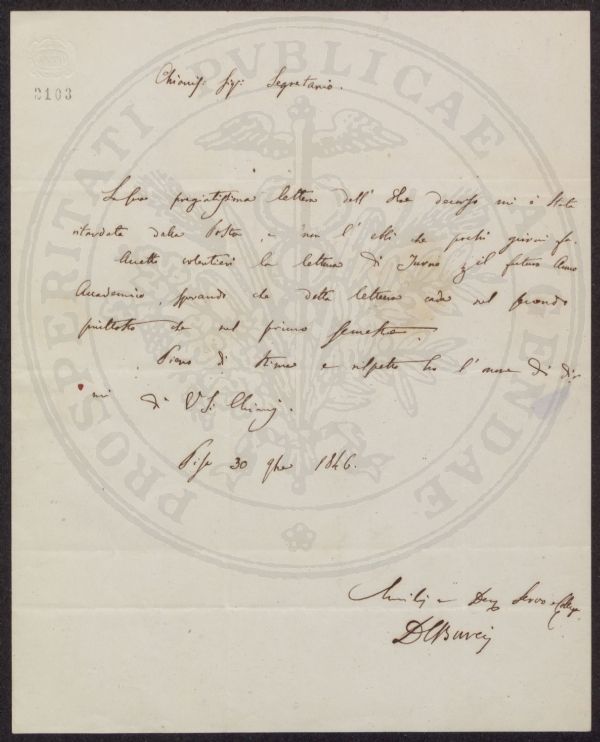 2103
PROSPERITATI PUBLICAE AUGENDAE
Chiariss: Sigr: Segretario.
La sua pregiatissima lettera dell' decorso mi è stata
ritardata dalla Posta, e non l' ebbi che pochi giorni fa.
Accetto volentieri la lettura di Turno il futuro Anno
Accademico, sperando che detta lettura cada nel secondo
piuttosto che nel primo semestre.
Pieno di stima e rispetto ho l' onore di
di V S: Chiariss.
Pisa 30 9bre 1846.
e Servo e Collega